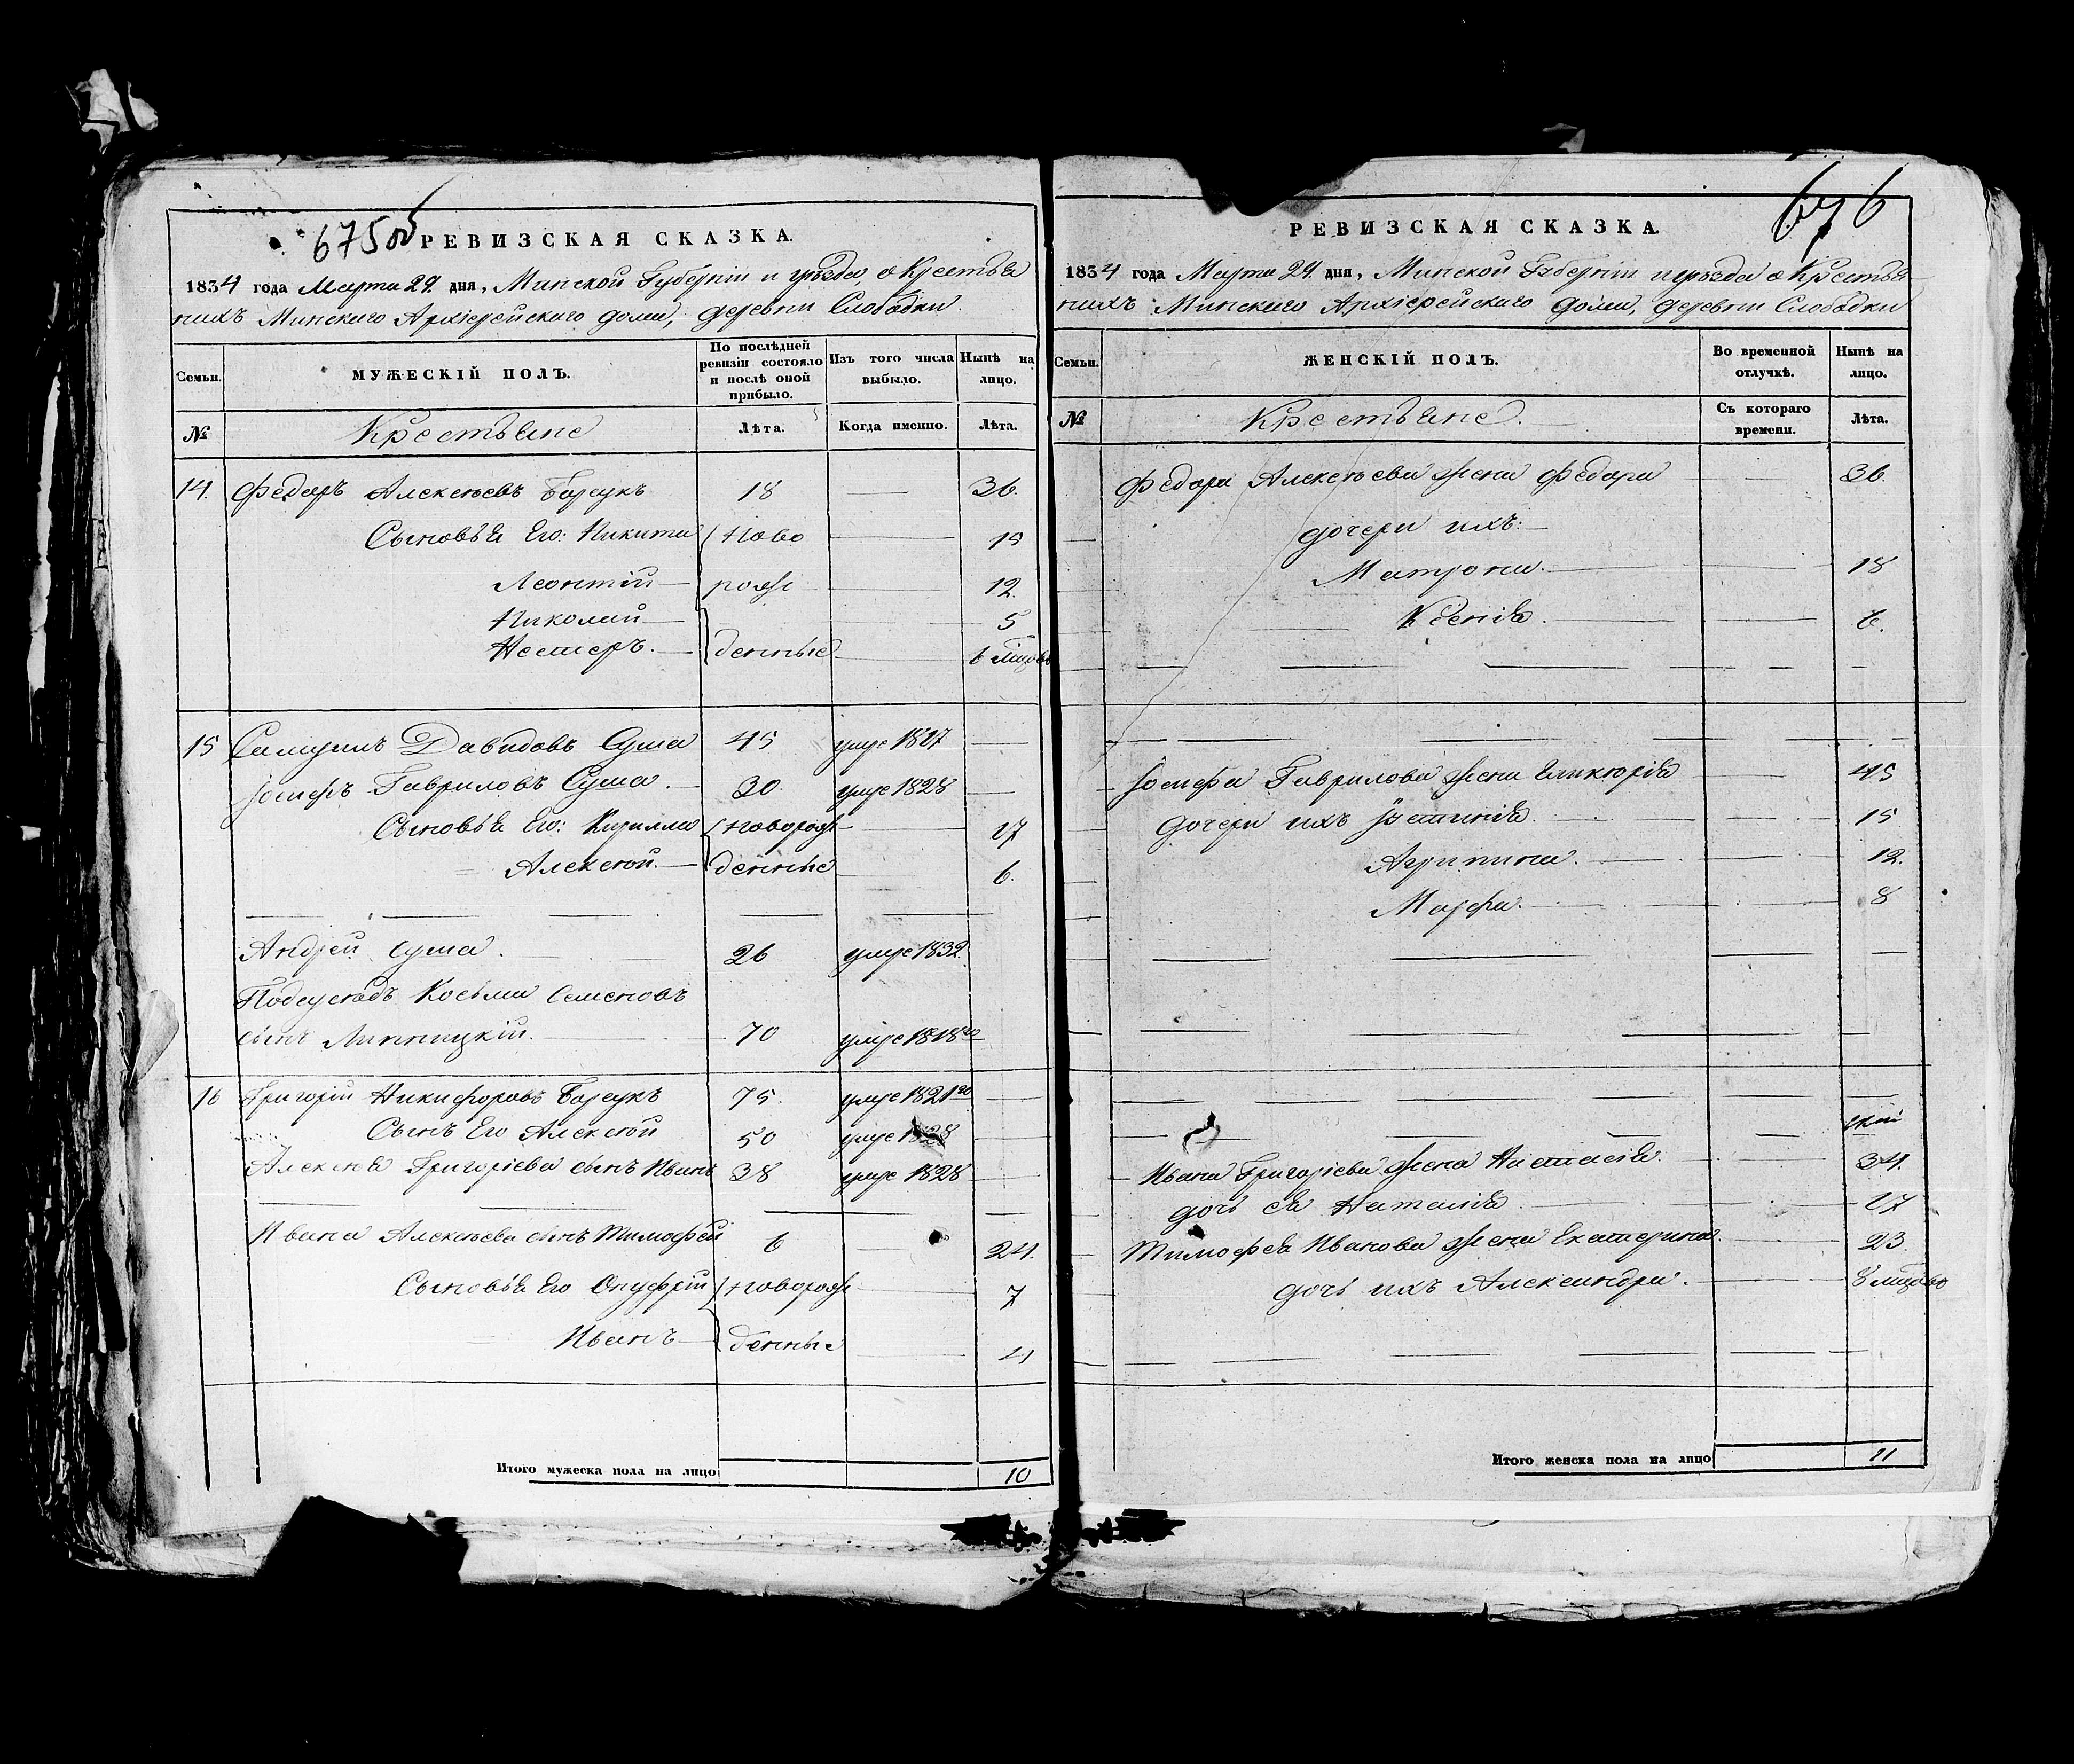 675 об
РЕВИЗСКАЯ СКАЗКА.
1834 года Марта 29. дня, Минской Губерніи и уѣзда, о Крестья
нахъ Минскаго Архіерейскаго дома, деревни Слободки.
Семьи.
МУЖЕСКІЙ ПОЛЪ.
По послѣдней ревизіи состояло и послѣ оной прибыло.
Изъ того числа выбыло.
Нынѣ на лицо.
№
Крестьяне
Лѣта.
Когда именно.
Лѣта.
14. Федоръ Алексѣевъ Барсукъ 18 — 36.
Сыновья Его: Никита Ново — 15
Леонтій рож — 12.
Николай — 5
Нестеръ. денные — 6 мѣцовъ
15 Самуилъ Давидовъ Сума 45 умре 1827 —
Іосифъ Гавриловъ Сума. 30. умре 1828 —
Сыновья Его: Кирилло новорож — 17
Алексѣй. денные — 6.
Андрей Сума. 26 умре 1832.
Подсусѣдъ Косьма Семеновъ
сынъ Липницкій. 70 умре 1818го
16 Григорій Никифоровъ Барсукъ 75. умре 1821го —
Сынъ Его Алексѣй 50 умре 1828 —
Алексѣя Григоріева сынъ Иванъ 38 умре 1828 —
Ивана Алексѣева сынъ Тимофей 6 — 24.
Сыновья Его Онуфрій новорож — 7
Иванъ денные — 4
Итого мужеска пола на лицо 10
РЕВИЗСКАЯ СКАЗКА.
1834 года Марта 29. дня, Минской Губерніи и уѣзда о Крестья
нахъ Минскаго Архіерейскаго дома, деревни Слободки
Семьи.
ЖЕНСКІЙ ПОЛЪ.
Во временной отлучкѣ.
Нынѣ на лицо.
№
Крестьяне.
Съ котораго времени.
Лѣта.
Федора Алексѣева жена Федора — 36
дочери ихъ:
Матрона. — 18
Ксенія. — 6.
Іосифа Гаврилова жена Гликерія — 45
дочери ихъ Іустинія. — 15
Агрипина. — 12.
Марфа. — 8
Ивана Григоріева жена Настасія. — 34.
дочь ея Наталія — 17
Тимофея Иванова жена Екатерина. — 23.
дочь ихъ Александра. — 8 мѣцовъ
Итого женска пола на лицо 11